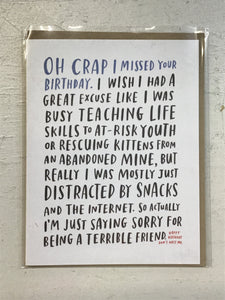 OH CRAP I MISSED YOUR
BIRTHDAY. I WISH I HAD A
GREAT EXCUSE LIKE I WAS
BUSY TEACHING LIFE
SKILLS TO AT-RISK YOUTH
OR RESCUING KITTENS FROM
AN ABANDONED MINE, BUT
REALLY I WAS MOSTLY JUST
DISTRACTED BY SNACKS
AND THE INTERNET. SO ACTUALLY
I'M JUST SAYING SORRY FOR
BEING A TERRIBLE FRIEND.
HAPPY
BIRTHDAY
DON'T HATE ME.